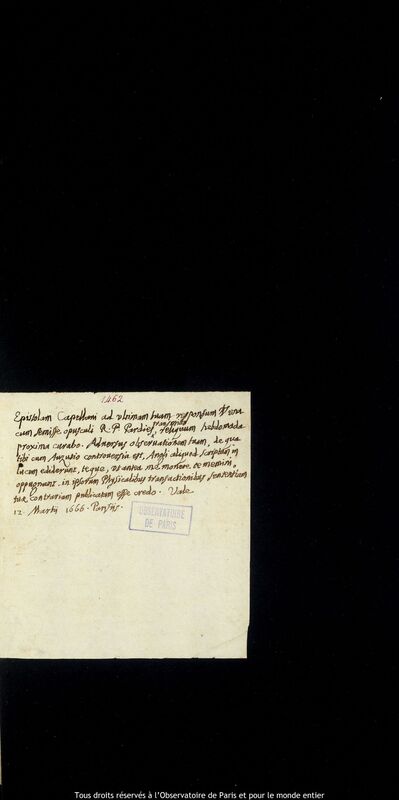 1462
Epistolam Capellani ad ultimam tuam responsum
cum semisse opusculi R. P. Pardies transmitto, reliquum hebdomada
proxima curabo. Adversus observationem tuam, de qua
tibi cum Auzutio controversia est, Angli aliquod scriptum in
lucem ediderunt, teque, ut antea me monere memini,
oppugnant. in ipsorum Physicalibus transactionibus sententiam
tuæ contrariam publicatam esse credo. Vale
12. Martii 1666. Parisiis.
OBSERVATOIRE
DE PARIS
Tous droits réservés à l'Observatoire de Paris et pour le monde entier